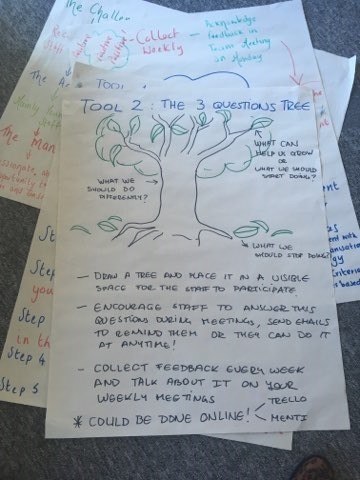 The Challen
Collect
Weekly
Acknowledge
feedback in
Team Meeting
on Monday
TOOL
The Man
TOOL 2 : THE 3 QUESTIONS TREE
WHAT CAN
HELP US GROW
OR
WHAT WE SHOULD
START DOING?
WHAT WE
SHOULD DO
DIFFERENTLY?
WHAT WE
WOULD STOP DOING?
— DRAW A TREE AND PLACE IT IN A VISIBLE
SPACE FOR THE STAFF TO PARTICIPATE.
— ENCOURAGE STAFF TO ANSWER THIS
QUESTIONS DURING MEETINGS, SEND EMAILS
TO REMIND THEM OR THEY CAN DO IT
AT ANYTIME!
— COLLECT FEEDBACK EVERY WEEK
AND TALK ABOUT IT ON YOUR
WEEKLY MEETINGS
* COULD BE DONE ONLINE!
TRELLO
MENTI
St
Ste
you
Step
in th
Step 4
Step 5